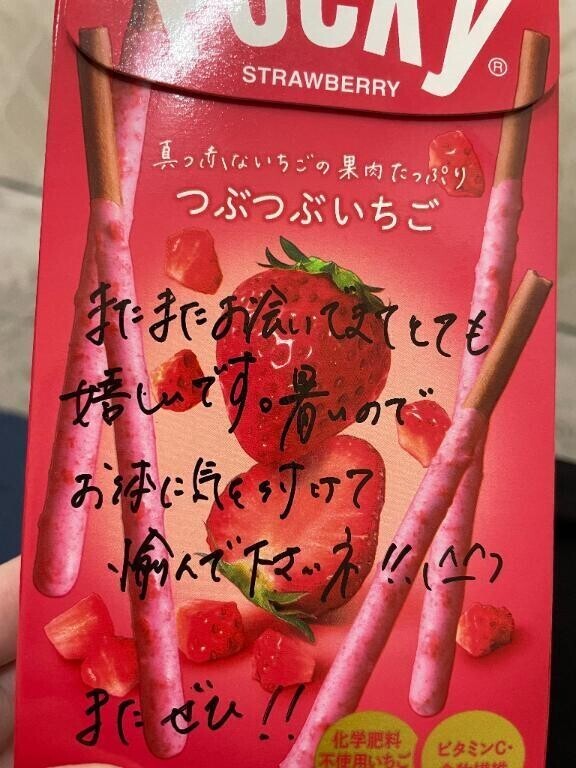 Pocky®
STRAWBERRY
真っ赤ないちごの果肉たっぷり
つぶつぶいちご
またまたお会いできてとても
嬉しいです。暑いので
お体に気を付けて
愉んで下サイネ!!(^^)
またぜひ!!
化学肥料
不使用いちご
ビタミンC・